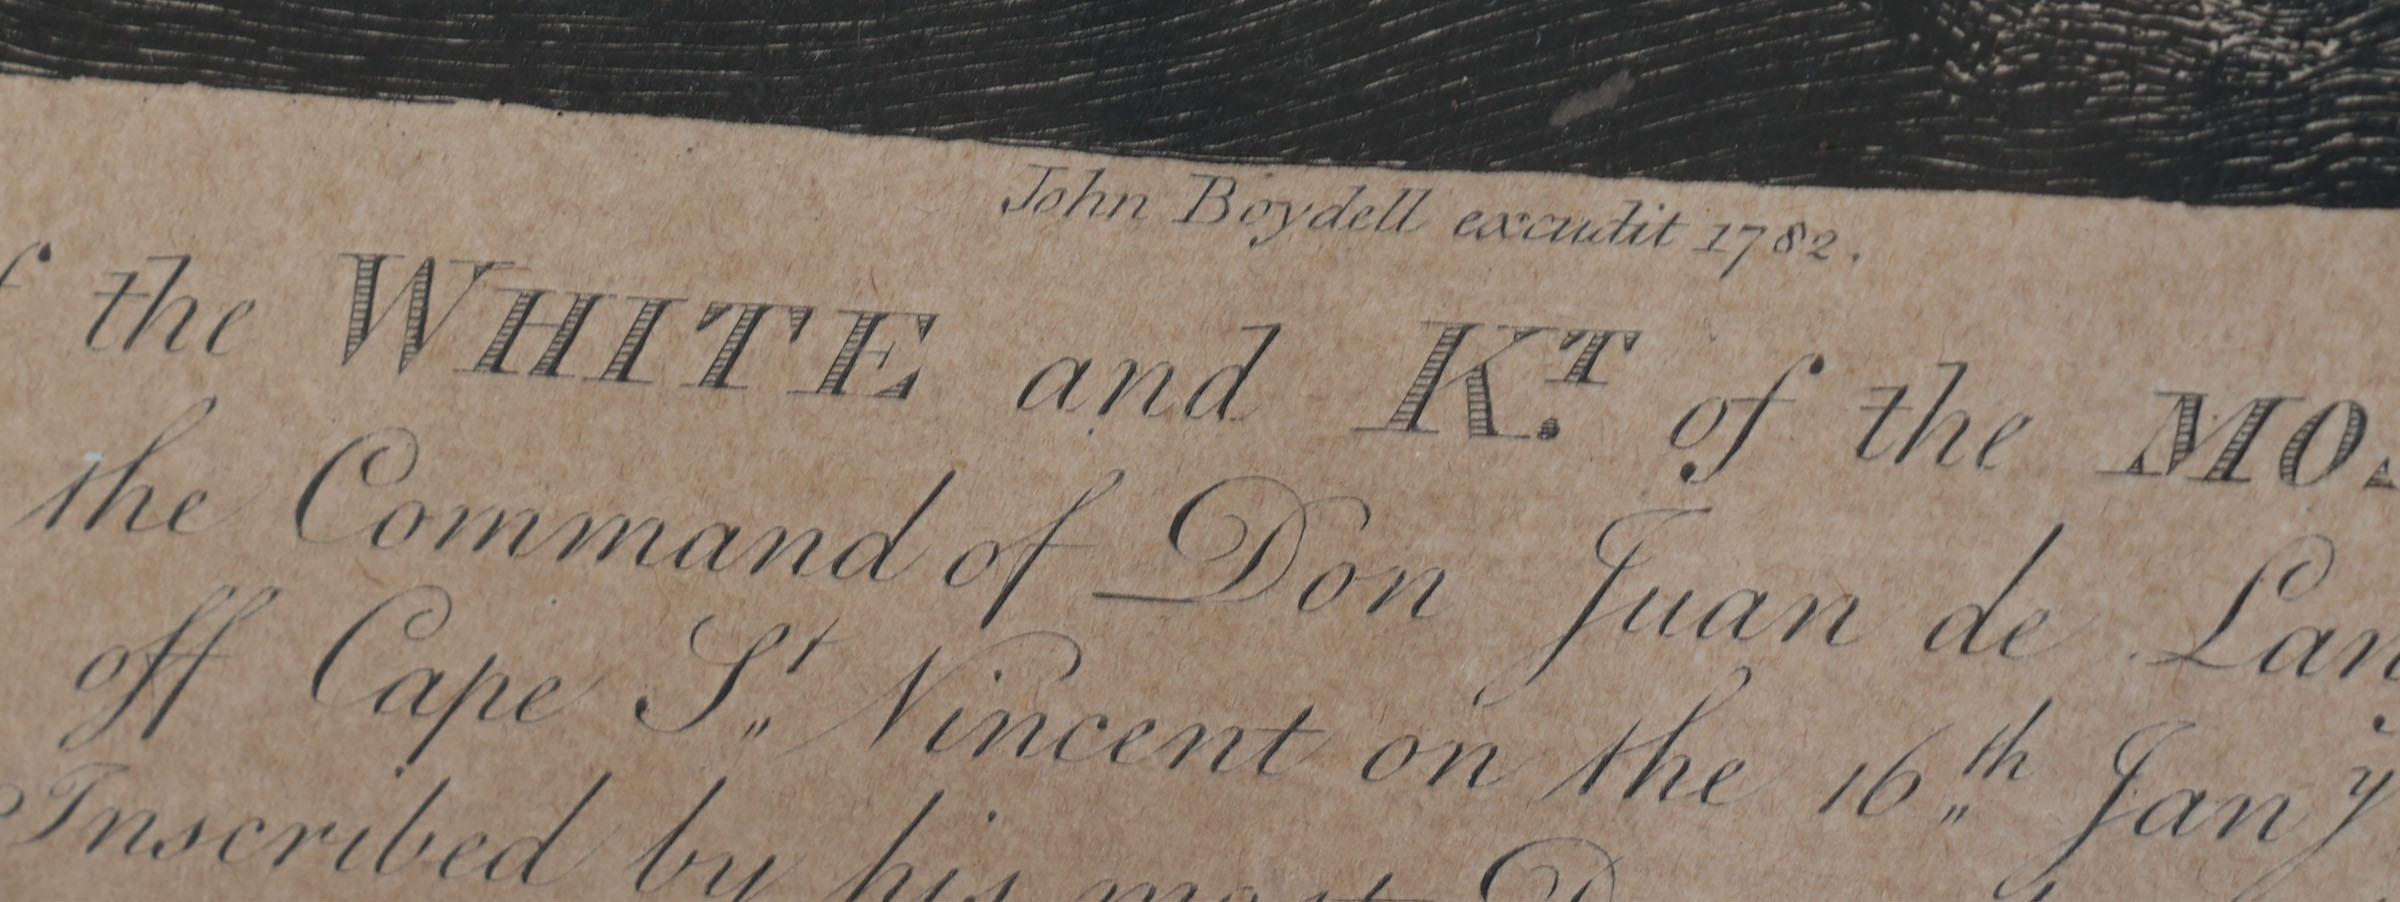 John Boydell excudit 1782.
f the WHITE and K.T of the MO
the Command of Don Juan de Lan
off Cape St,, Vincent on the 16,,th Jany
Inscribed by his most